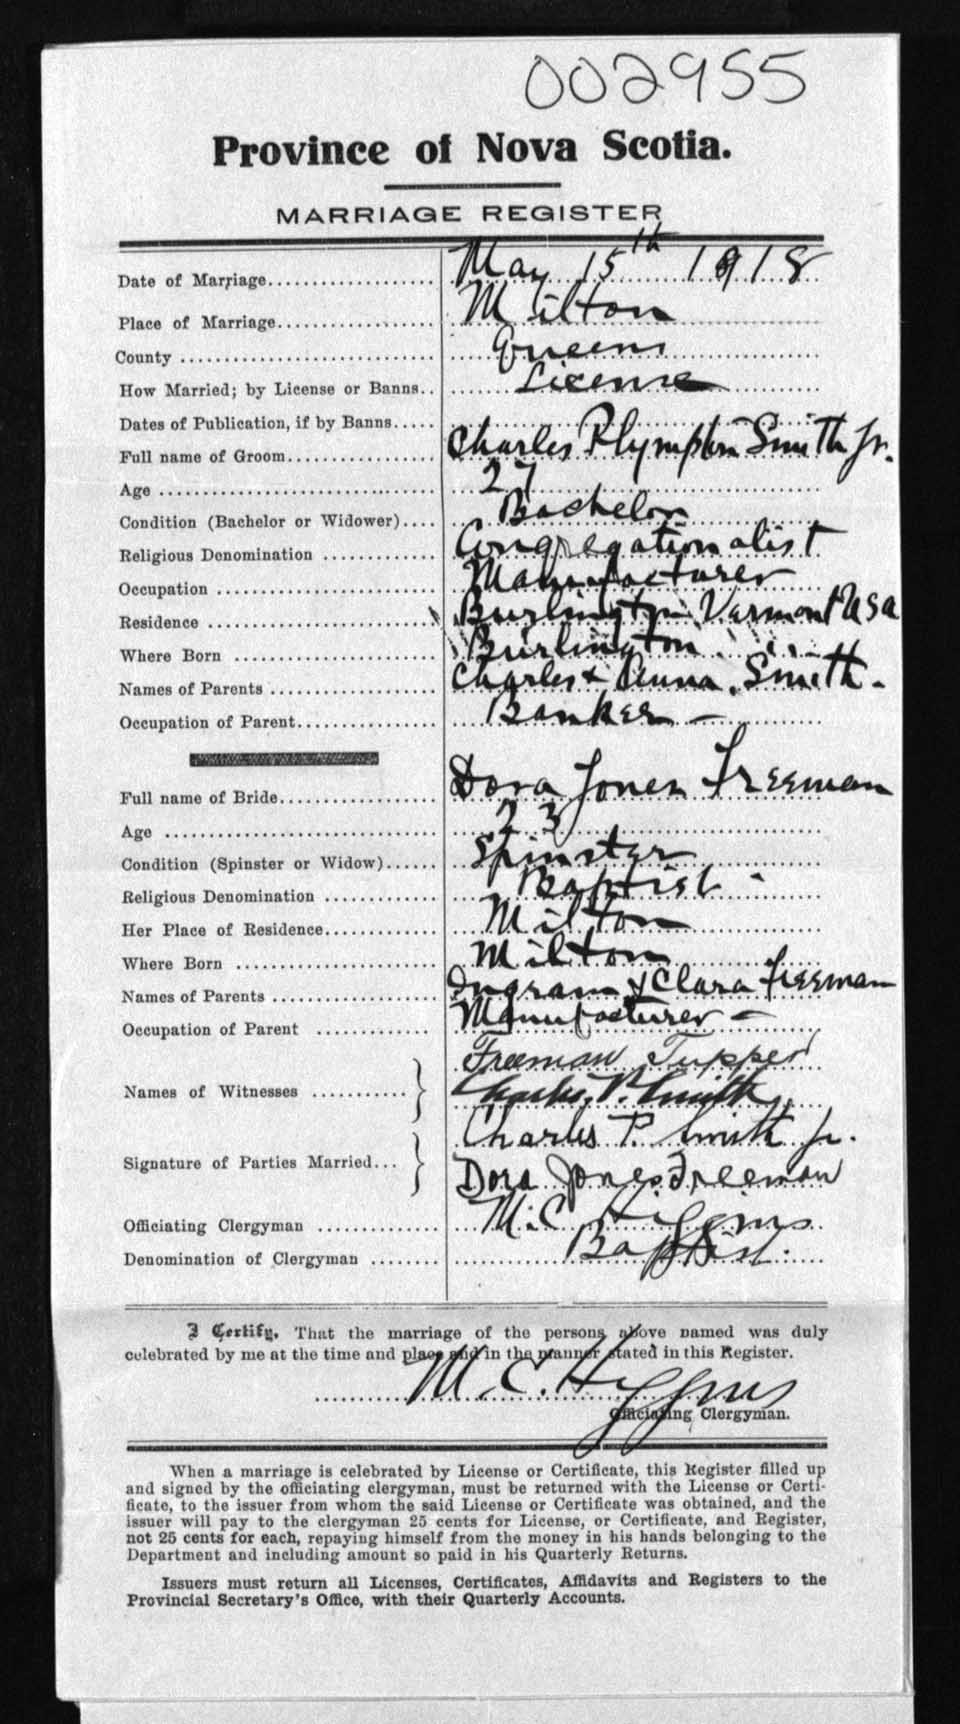 002955
Province of Nova Scotia.
MARRIAGE REGISTER
Date of Marriage.................... May 15th 1918
Place of Marriage................... Milton
County ............................. Queens
How Married; by License or Banns.. License
Dates of Publication, if by Banns.....
Full name of Groom.................. Charles Plympton Smith Jr.
Age ................................ 27
Condition (Bachelor or Widower).... Bachelor
Religious Denomination ............. Congregationalist
Occupation ......................... Manufacturer
Residence .......................... Burlington Vermont USA
Where Born ......................... Burlington " "
Names of Parents ................... Charles & Anna Smith.
Occupation of Parent................ Banker —
Full name of Bride.................. Dora Jones Freeman
Age ................................ 23
Condition (Spinster or Widow)...... Spinster
Religious Denomination ............. Baptist -
Her Place of Residence............. Milton
Where Born ......................... Milton
Names of Parents ................... Ingram & Clara Freeman
Occupation of Parent .............. Manufacturer —
Names of Witnesses ........... } Freeman Tupper
Charles P. Smith
Signature of Parties Married... } Charles P. Smith Jr.
Dora Jones Freeman
Officiating Clergyman .............. M. C. Higgins
Denomination of Clergyman ........ Baptist.
I Certify, That the marriage of the persons above named was duly
celebrated by me at the time and place and in the manner stated in this Register.
M. C. Higgins
Officiating Clergyman.
When a marriage is celebrated by License or Certificate, this Register filled up
and signed by the officiating clergyman, must be returned with the License or Certi-
ficate, to the issuer from whom the said License or Certificate was obtained, and the
issuer will pay to the clergyman 25 cents for License, or Certificate, and Register,
not 25 cents for each, repaying himself from the money in his hands belonging to the
Department and including amount so paid in his Quarterly Returns.
Issuers must return all Licenses, Certificates, Affidavits and Registers to the
Provincial Secretary's Office, with their Quarterly Accounts.